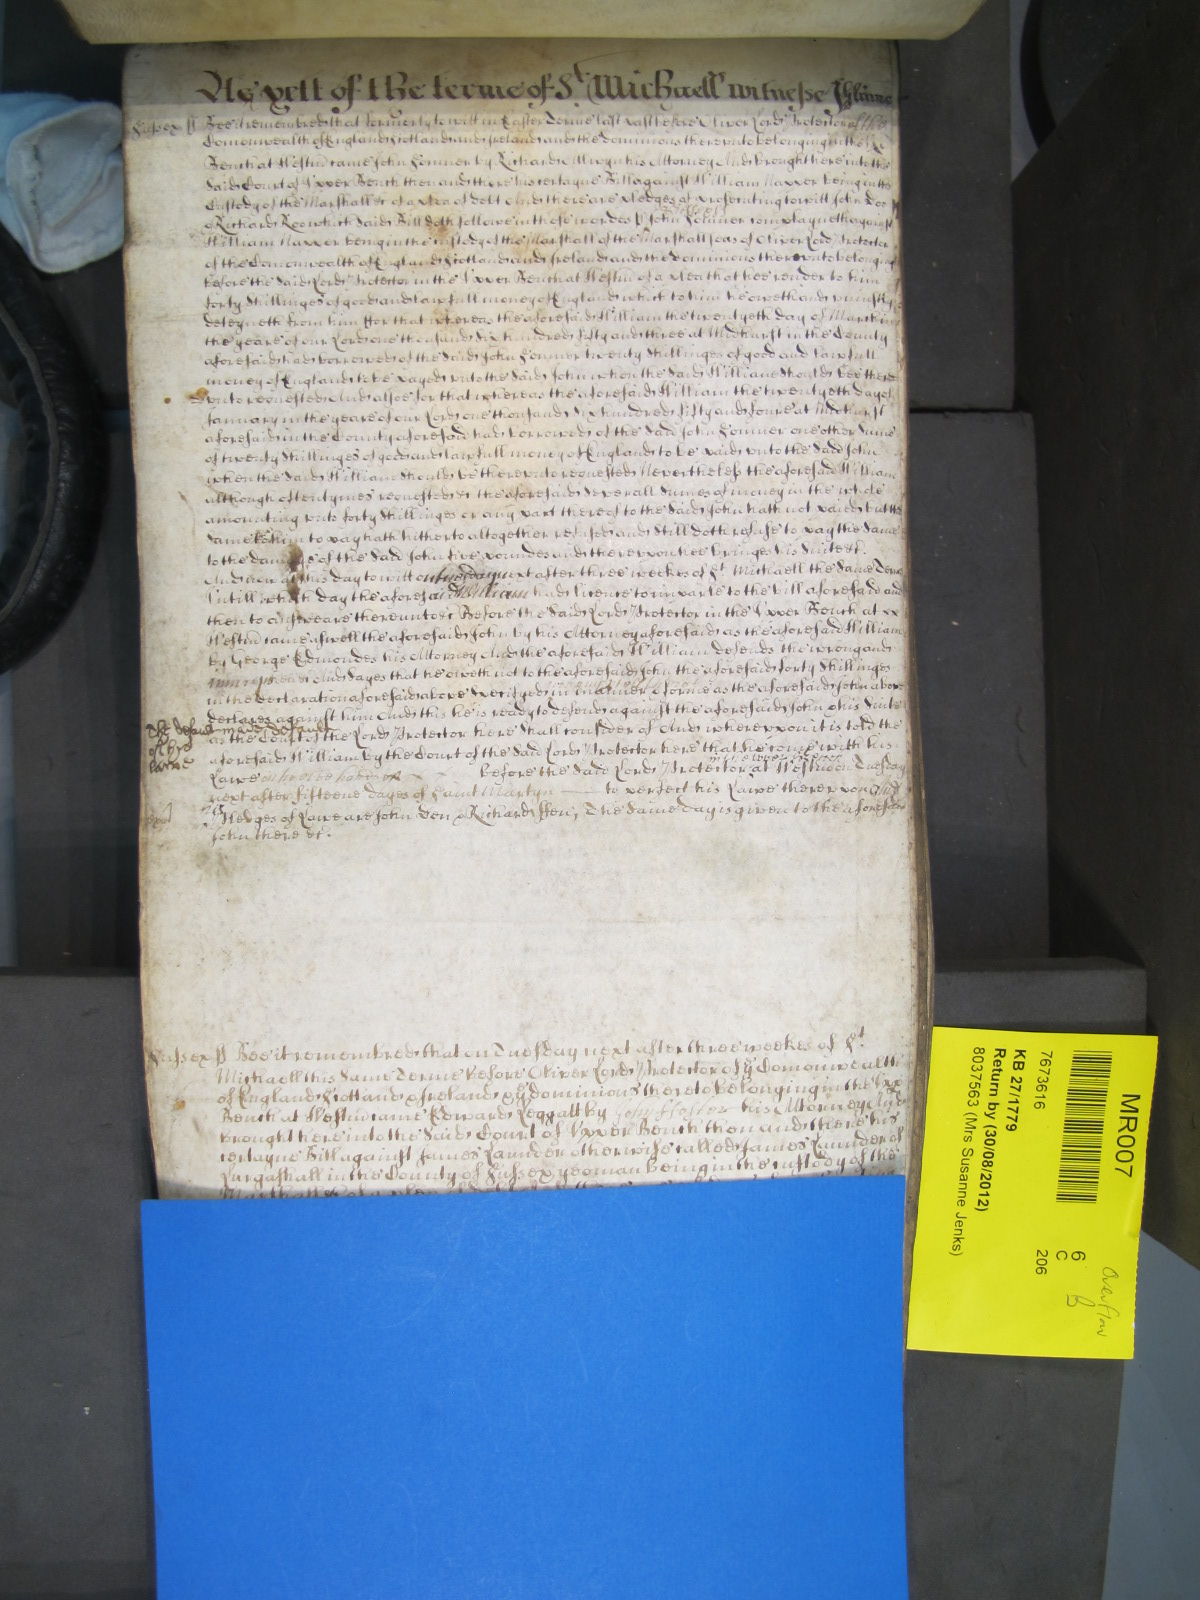 As yett of the terme of St Michaell witnesse
Sussex ss Bee it remembred that formerly to witt in Easter Terme last past before Oliver Lord Protector of the
Comonwealth of England Scotland and Ireland and the dominions thereunto belonging in the
Bench at Westm came John by Richard Alwyn his Attorney And brought here into the
said Court of Upper Bench then and there his certayne Bill against William Napper being in the
Custody of the Marshall &c of a plea of debt And there are pledges of prosecuting to witt John Doe
& Richard Roe which said Bill doth followe in these wordes ss John complayneth against
William Napper being in the custody of the Marshall of the Marshallseas of Oliver Lord Protector
of the Comonwealth of England Scotland and Ireland and the dominions thereunto belonging
before the said Lord Protector in the Upper Bench at Westm of a plea that hee render to him
forty shillinges of good and lawfull money of England which to him he oweth and uniustly
deteyneth from him For that whereas the aforesaid William the twentyeth day of March in
the yeare of our Lord one thousand six hundred fifty and three at Midhurst in the County
aforesaid had borrowed of the said John twenty shillinges of good and lawfull
money of England to be payed unto the said John when the said William should bee there
unto requested And alsoe for that whereas the aforesaid William the twentyeth day of
January in the yeare of our Lord one thousand six hundred fifty and foure at Midhurst
aforesaid in the County aforesaid had borrowed of the said John one other summe
of twenty shillinges of good and lawfull money of England to be paid unto the said John
when the said William should be thereunto requested Neverthelesse the aforesaid William
although oftentymes requested &c the aforesaid severall summes of money in the whole
amounting unto forty shillinges or any part thereof to the said John hath not paid but the
same to him to pay hath hitherto altogether refused and still doth refuse to pay the same
to the damage of the said John five poundes and thereupon hee bringes his suite &c.
And now at this day to witt on tuesday next after three weekes of St Michaell the same Terme
untill which day the aforesaid William had licence to imparle to the bill aforesaid and
then to answeare thereunto &c Before the said Lord Protector in the Upper Bench at
Westm came aswell the aforesaid John by his Attorney aforesaid as the aforesaid William
by George Edmondes his Attorney And the aforesaid William defends the wrong and
iniury when &c And sayes that he oweth not to the aforesaid John the aforesaid forty shillinges
in the declaration aforesaid above specifyed in manner & forme as the aforesaid John above
declares against him And this he is ready to defend against the aforesaid John & his suite
as the Court of the Lord Protector here shall consider of And whereupon it is told the
aforesaid William by the Court of the said Lord Protector here that he come with his
Lawe before the said Lord Protector at Westm on Tuesday
next after fifteene dayes of Saint Martyn to perfect his Lawe thereupon And
Pledges of Lawe are John Den & Richard Fen, The same day is given to the aforesaid
John there &c.
Sussex ss Bee it remembred that on Tuesday next after three weekes of St
Michaell this same Terme before Oliver Lord Protector of ye Comonwealth
of England Scotland & Ireland & ye dominions thereto belonging in the
Bench at Westm came Edward Leggatt by John Foster his Attorney And
brought here into the said Court of Upper Bench then and there his
certayne Bill against James Launder otherwise called James Launder of
Lurgashall in the County of Sussex yeoman being in the custody of the
MR007
7673616
KB 27/1779
Return by (30/08/2012)
8037563 (Mrs Susanne Jenks)
6
C
206
Overflow
B